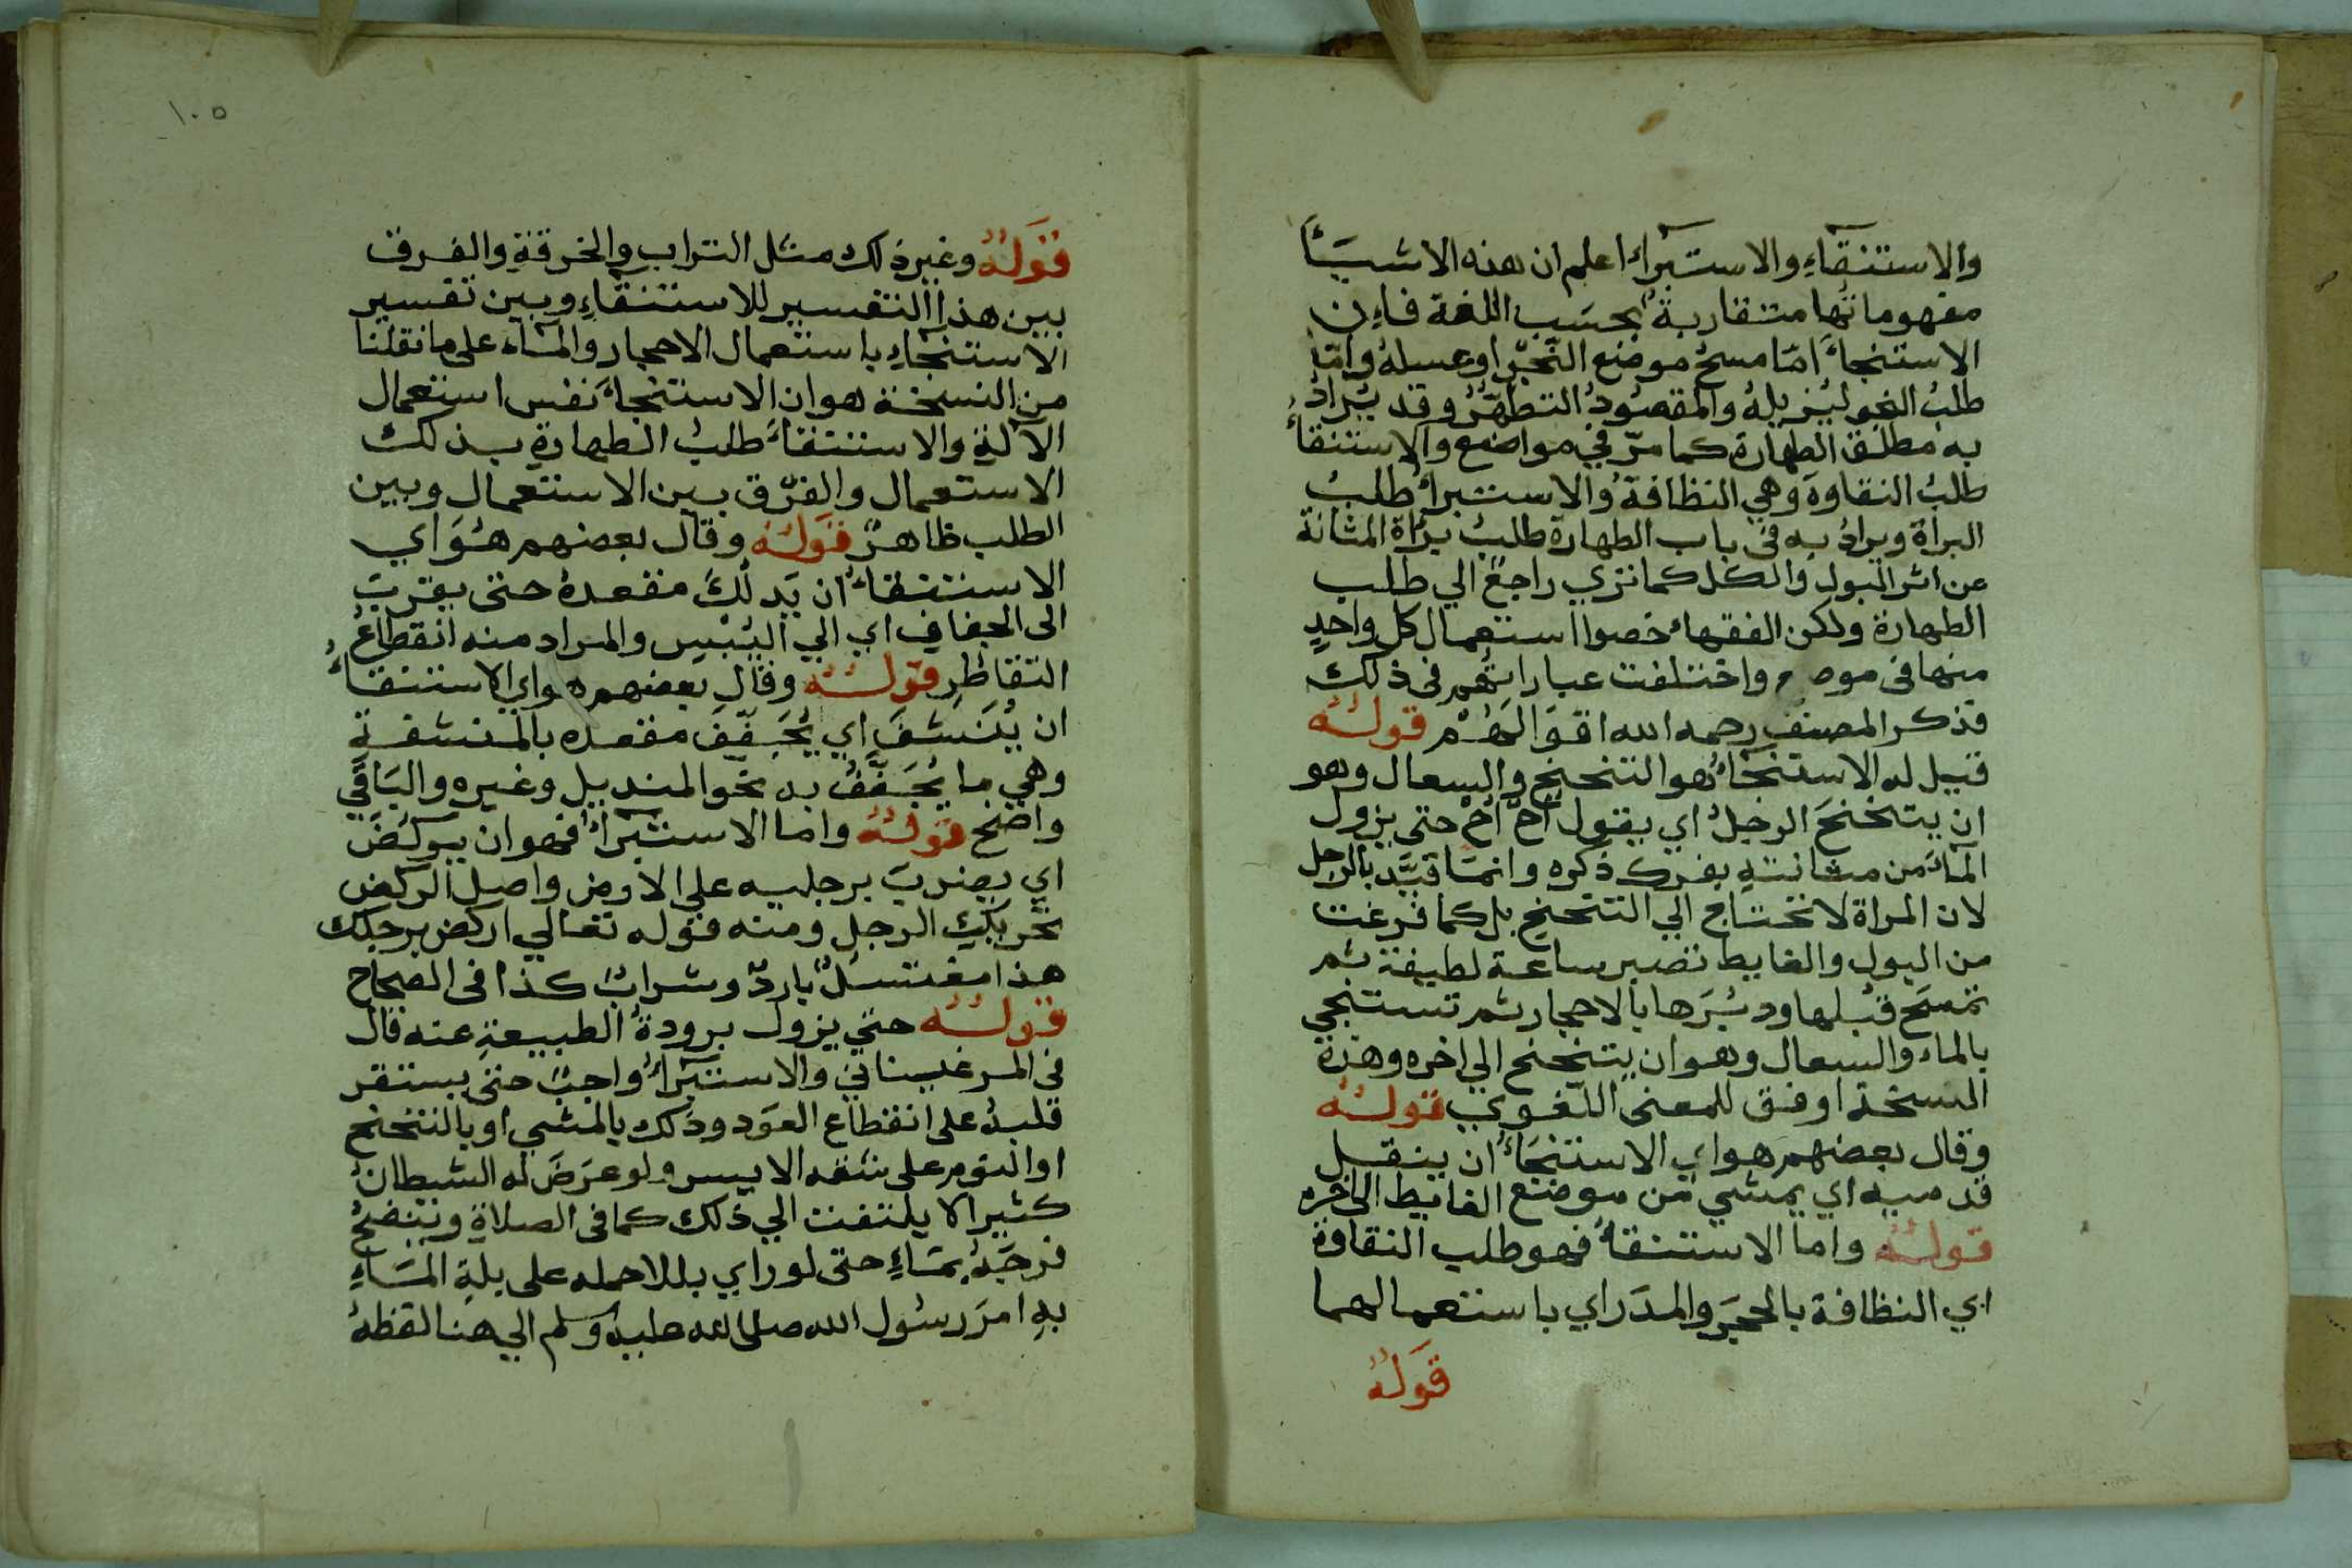 والاستنقاءِ والاستبراءُ اعلم ان هذه الاشيَاً
مفهوماتُها متقاربةٌ بحسَب اللغة فاِن
الاستنجاءَ امّا مسحُ موضع النّجْوِ او غسلهُ وامّا
طلبُ النجو ليزيلهُ والمقصُودُ التطهّرُ وقد يُرادُ
به مطلق الطهارة كما مرّ في مواضع والاستنقاءُ
طلبُ النقاوة وهي النظافةُ والاستبراءُ طلبُ
البراة ويرادُ به فى باب الطهارة طلبُ براة المثانة
عن اثر البول والكل كما تري راجعٌ الي طلب
الطهارة ولكن الفقهاءُ خصوا استعمال كل واحدٍ
منها فى موضع واختلفت عباراتُهم فى ذلك
فذكر المصنف رحمه الله اقوَالهُمْ قولـُـه
قيل له الاستنجاءُ هو التنحنح والسعال وهو
ان يتنحنحَ الرجلُ اي يقول اَحْ اَحْ حتى يزول
المآءَ من مثانتهِ بفرك ذكره وانمَا قيَّد بالرجل
لان المراة لا تحتاج الي التنحنح بل كما فرغت
من البول والغايط تصبر ساعة لطيفة ثم
تمسَح قُبُلها ودُبُرَها بالاحجار ثم تستنجي
بالماء والسعال وهو ان يتنحنح الي اخره وهذة
النسخة اوفق للمعنى اللّغوي قولـُـه
وقال بعضهم هو اي الاستنجَاءُ ان ينقل
قدميه اي يمشي من موضع الغايط الى اخره
قولـُـه واما الاستنقاءُ فهو طلب النقاوة
اي النظافة بالحجَرِ والمدَر اي باستعمالهما
قَولُهُ
١٠٥
قَولُهُ وغير ذلك مثل الترابِ والخرقةِ والفرق
بين هذا التفسير للاستنقاءِ وبين تفسير
الاستنجاءِ باستعمال الاحجار والمآء على ما نقلنا
من النسخة هو ان الاستنجاءَ نفس استعمال
الآلةِ والاستنقاءَ طلبُ الطهارةِ بذلك
الاستعمال والفرْق بين الاستعمال وبين
الطلب ظاهرٌ قَولـُه وقال بعضهم هُوَ اي
الاستنقاءُ ان يَدلُكَ مقعدهُ حتى يقربَ
الى الجفافِ اي الي اليُبْس والمراد منه انقطاعُ
التقاطُرِ قولـُـه وقال بعضهم هو اي الاستنقاءُ
ان يُنَشفَ اي يُجَفّفَ مقعده بالمنشفةِ
وهي ما يُجَفّفُ به نحو المنديل وغيره والبَاقي
واضح قولـُـه واما الاستبراءُ فهو ان يركُضَ
اي يضربَ برجليه على الارض واصل الركض
تحريك الرجلِ ومنه قوله تعالي اركض برجلك
هذا مغتسلٌ باردٌ وشرابٌ كذا فى الصحاح
قولـُـه حتي يزول برودةُ الطبيعةِ عنه قال
فى المرغيناني والاستبراءُ واجبٌ حتى يستقر
قلبهُ على انقطاع العَود وذلك بالمشي او بالتنحنح
او النوم على شقه الايسر ولو عرَضَ له الشيطانُ
كثيرا لا يلتفت الي ذلك كما فى الصلاةِ وينضحُ
فرجَهُ بمَاءٍ حتى لو راي بللا حمله على بلةِ المَاءِ
بهِ امرَ رسُول الله صلى الله عليه وسلم الي هنا لفظهُ